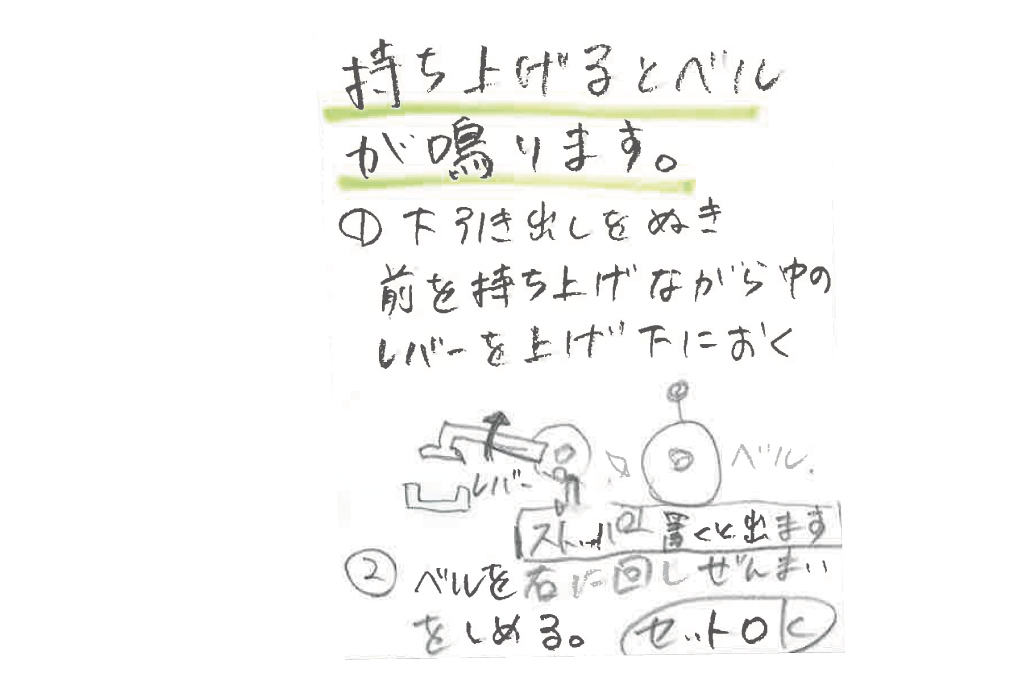 持ち上げるとベル
が鳴ります。
① 下引き出しをぬき
前を持ち上げながら中の
レバーを上げ下におく
レバー
ベル.
ストッパー 置くと出ます
② ベルを右に回しぜんまい
をしめる。 セットOK